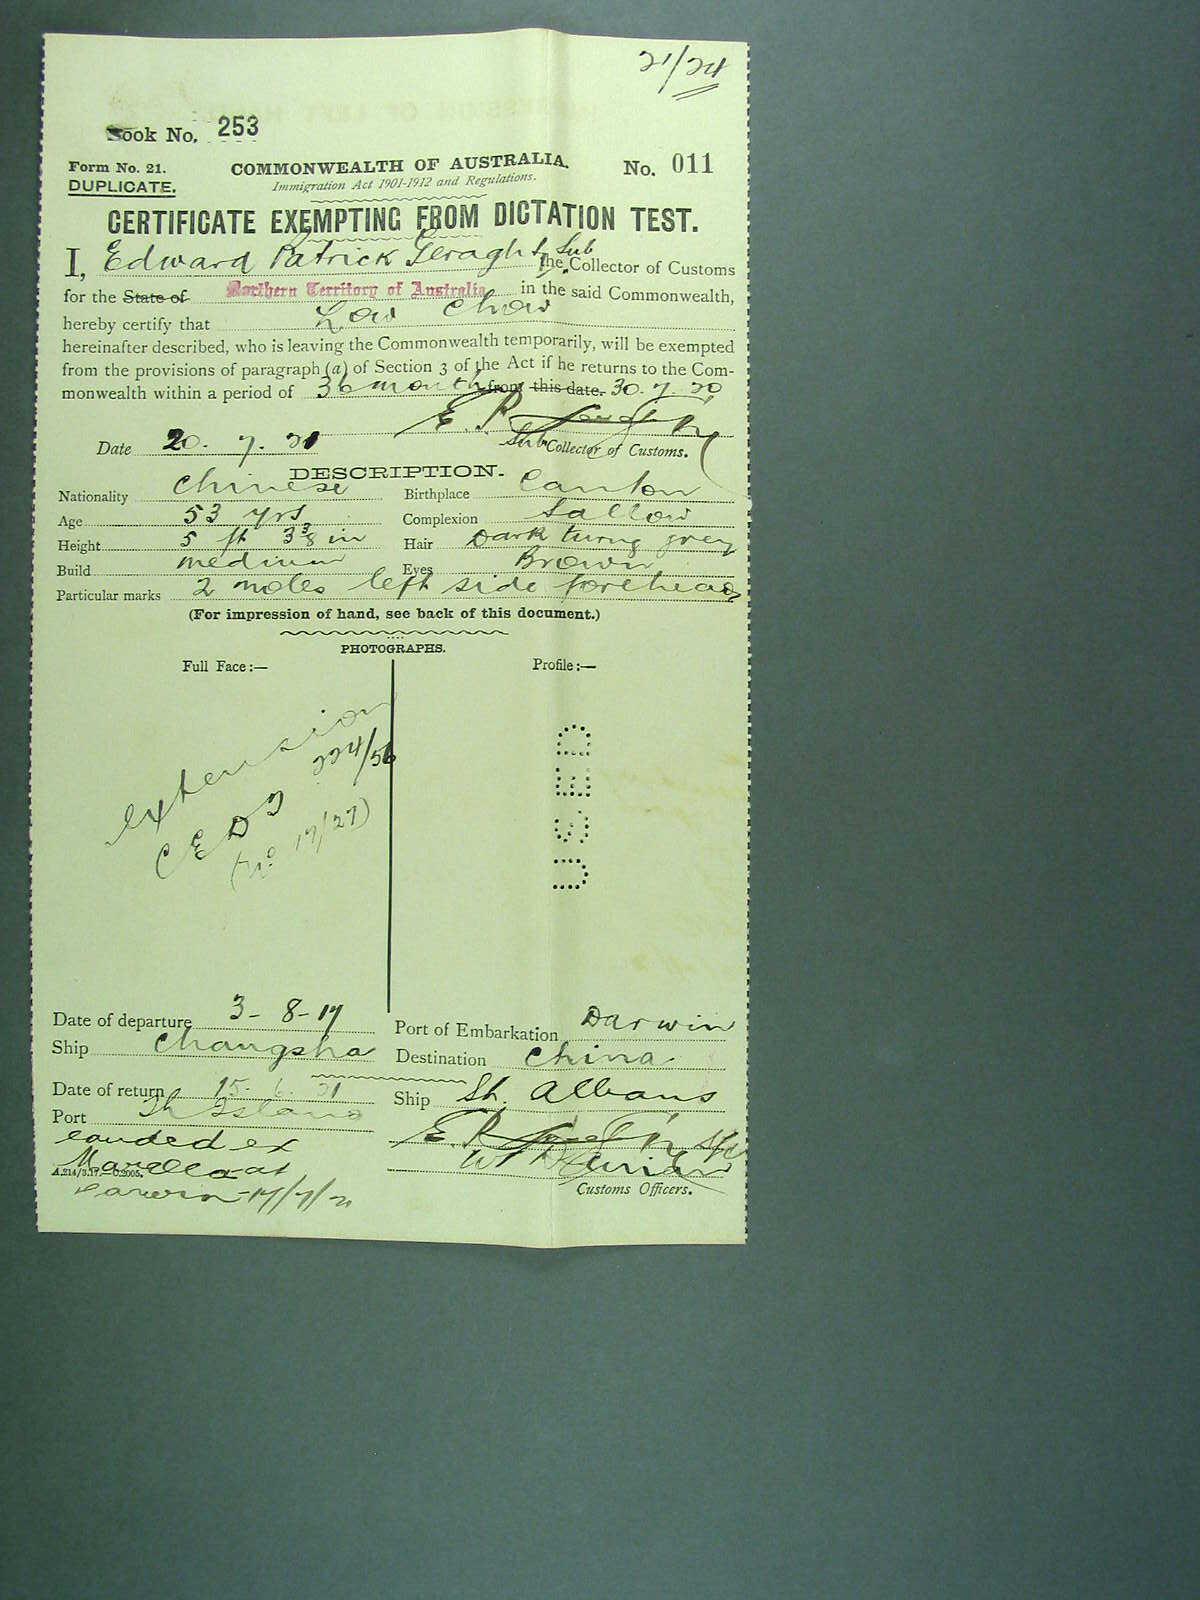 21/24
Book No. 253
Form No. 21. COMMONWEALTH OF AUSTRALIA. No. 011
DUPLICATE. Immigration Act 1901-1912 and Regulations.
CERTIFICATE EXEMPTING FROM DICTATION TEST.
I, Edward Patrick Geraghty the Sub Collector of Customs
for the State of Northern Territory of Australia in the said Commonwealth,
hereby certify that Low Chow
hereinafter described, who is leaving the Commonwealth temporarily, will be exempted
from the provisions of paragraph (a) of Section 3 of the Act if he returns to the Com-
monwealth within a period of 36 months from this date. 30.7.20
E. P. Geraghty
Date 20.7.21 Sub Collector of Customs.
DESCRIPTION.
Nationality Chinese Birthplace Canton
Age 53 yrs Complexion Sallow
Height 5 ft 3 3/8 in Hair Dark turng grey
Build medium Eyes Brown
Particular marks 2 moles left side forehead
(For impression of hand, see back of this document.)
PHOTOGRAPHS.
Full Face:— Profile:—
extension
CEDT 224/56
(No 17/27)
USED
Date of departure 3-8-17 Port of Embarkation Darwin
Ship Changsha Destination China
Date of return 15.6.21 Ship St. Albans
Port Th Island
landed ex E. P. Geraghty
Marella at
A.214/3.17.—C.2005.
Darwin 17/7/21 Customs Officers.